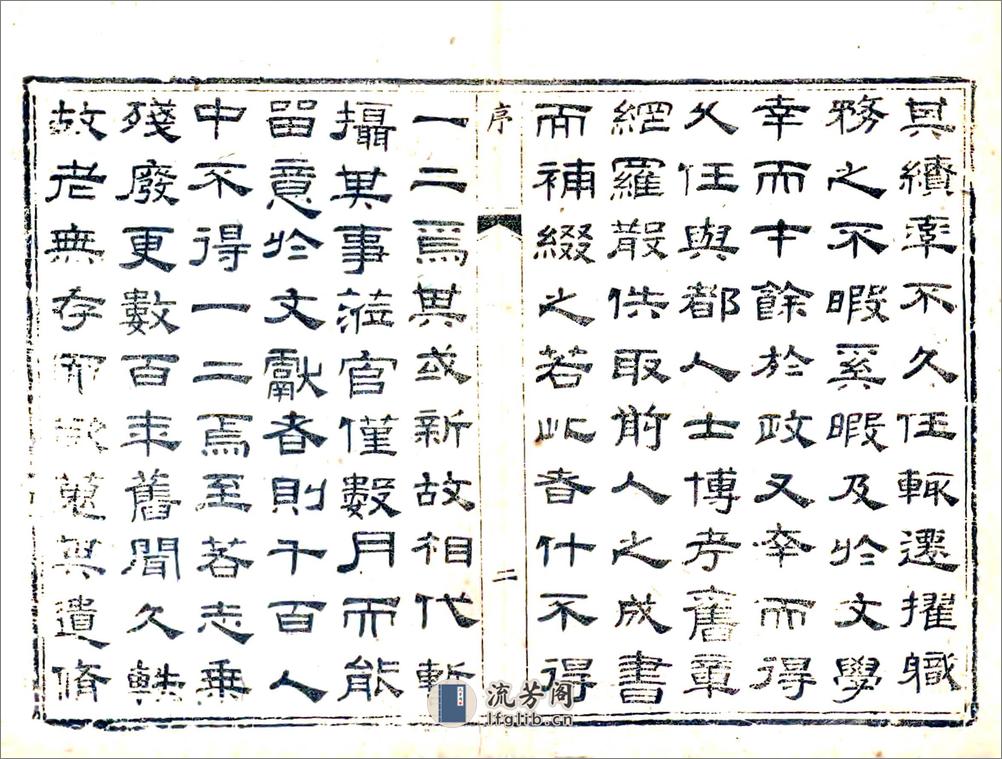 其續率不久任輒遷擢職
務之不暇奚暇及於文學
幸而才餘於政又幸而得
久任與都人士博考舊章
網羅散佚取前人之成書
而補綴之若此者什不得
序 二
一二焉其或新故相代暫
攝其事蒞官僅數月而能
留意於文獻者則千百人
中不得一二焉至若志乘
殘廢更數百年舊聞久軼
故老無存而欲蒐其遺脩
流芳阁
lfglib.cn